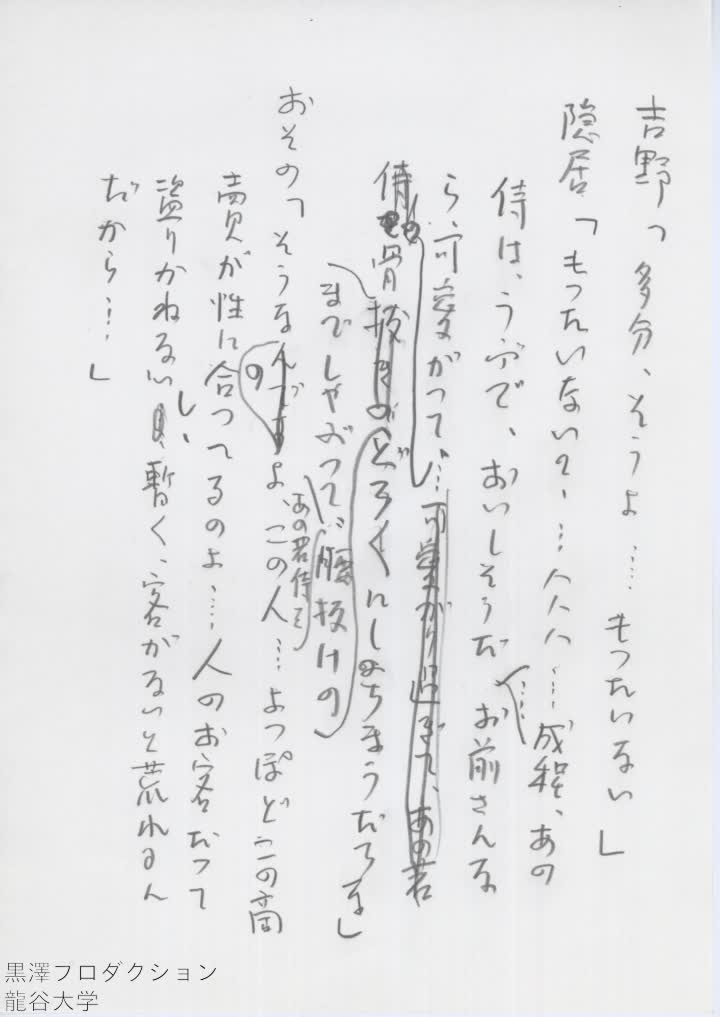 吉野「多分、そうよ……もったいない」
隠居「もったいない?……ハハハ……成程、あの
侍は、うぶで、おいしそうだ……お前さんな
ら、可愛がって、……可愛がり過ぎて、あの若
侍の骨抜きのどろくにしちまうだろな」
までしゃぶって、腰抜けの
あの若侍を
おその「そうなんですよ、この人…よっぽどこの商
の
売が性に合ってるのよ……人のお客だって
盗りかねないし、暫く、客がないと荒れるん
だから……」
黒澤プロダクション
龍谷大学